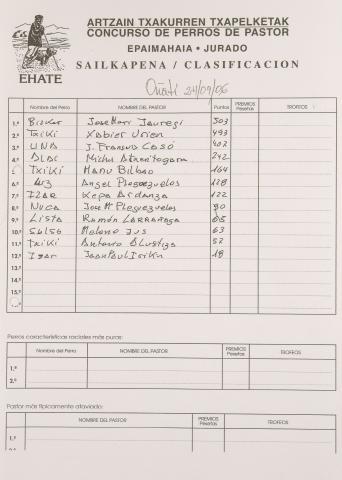 ARTZAIN TXAKURREN TXAPELKETAK
CONCURSO DE PERROS DE PASTOR
EPAIMAHAIA • JURADO
SAILKAPENA / CLASIFICACION
EHATE
Oñati 24/09/06
Nombre del Perro NOMBRE DEL PASTOR Puntos PREMIOS Pesetas TROFEOS
1.º Bizkar Jose Mari Jauregi 503
2.º Txiki Xabier Urien 493
3.º UNA J. Francis Casó 402
4.º BLAC Michel Atxaritogaray 242
Txiki Manu Bilbao 164
6.º Angel Pleguezuelos 128
7.º IZAR Kepa Ardanza 122
8.º NUCA Jose M Pleguezuelos 90
9.º Lista Ramón LARRAÑAGA 65
10.º Saltso Meleno Jus 63
11.º Txiki Antonio Olustiza 52
12.º Izar Juan Paul Iriku 18
13.º
14.º
15.º
Perros características raciales más puras:
Nombre del Perro NOMBRE DEL PASTOR PREMIOS Pesetas TROFEOS
1.º
2.º
Pastor más típicamente ataviado:
NOMBRE DEL PASTOR PREMIOS Pesetas TROFEOS
1.º